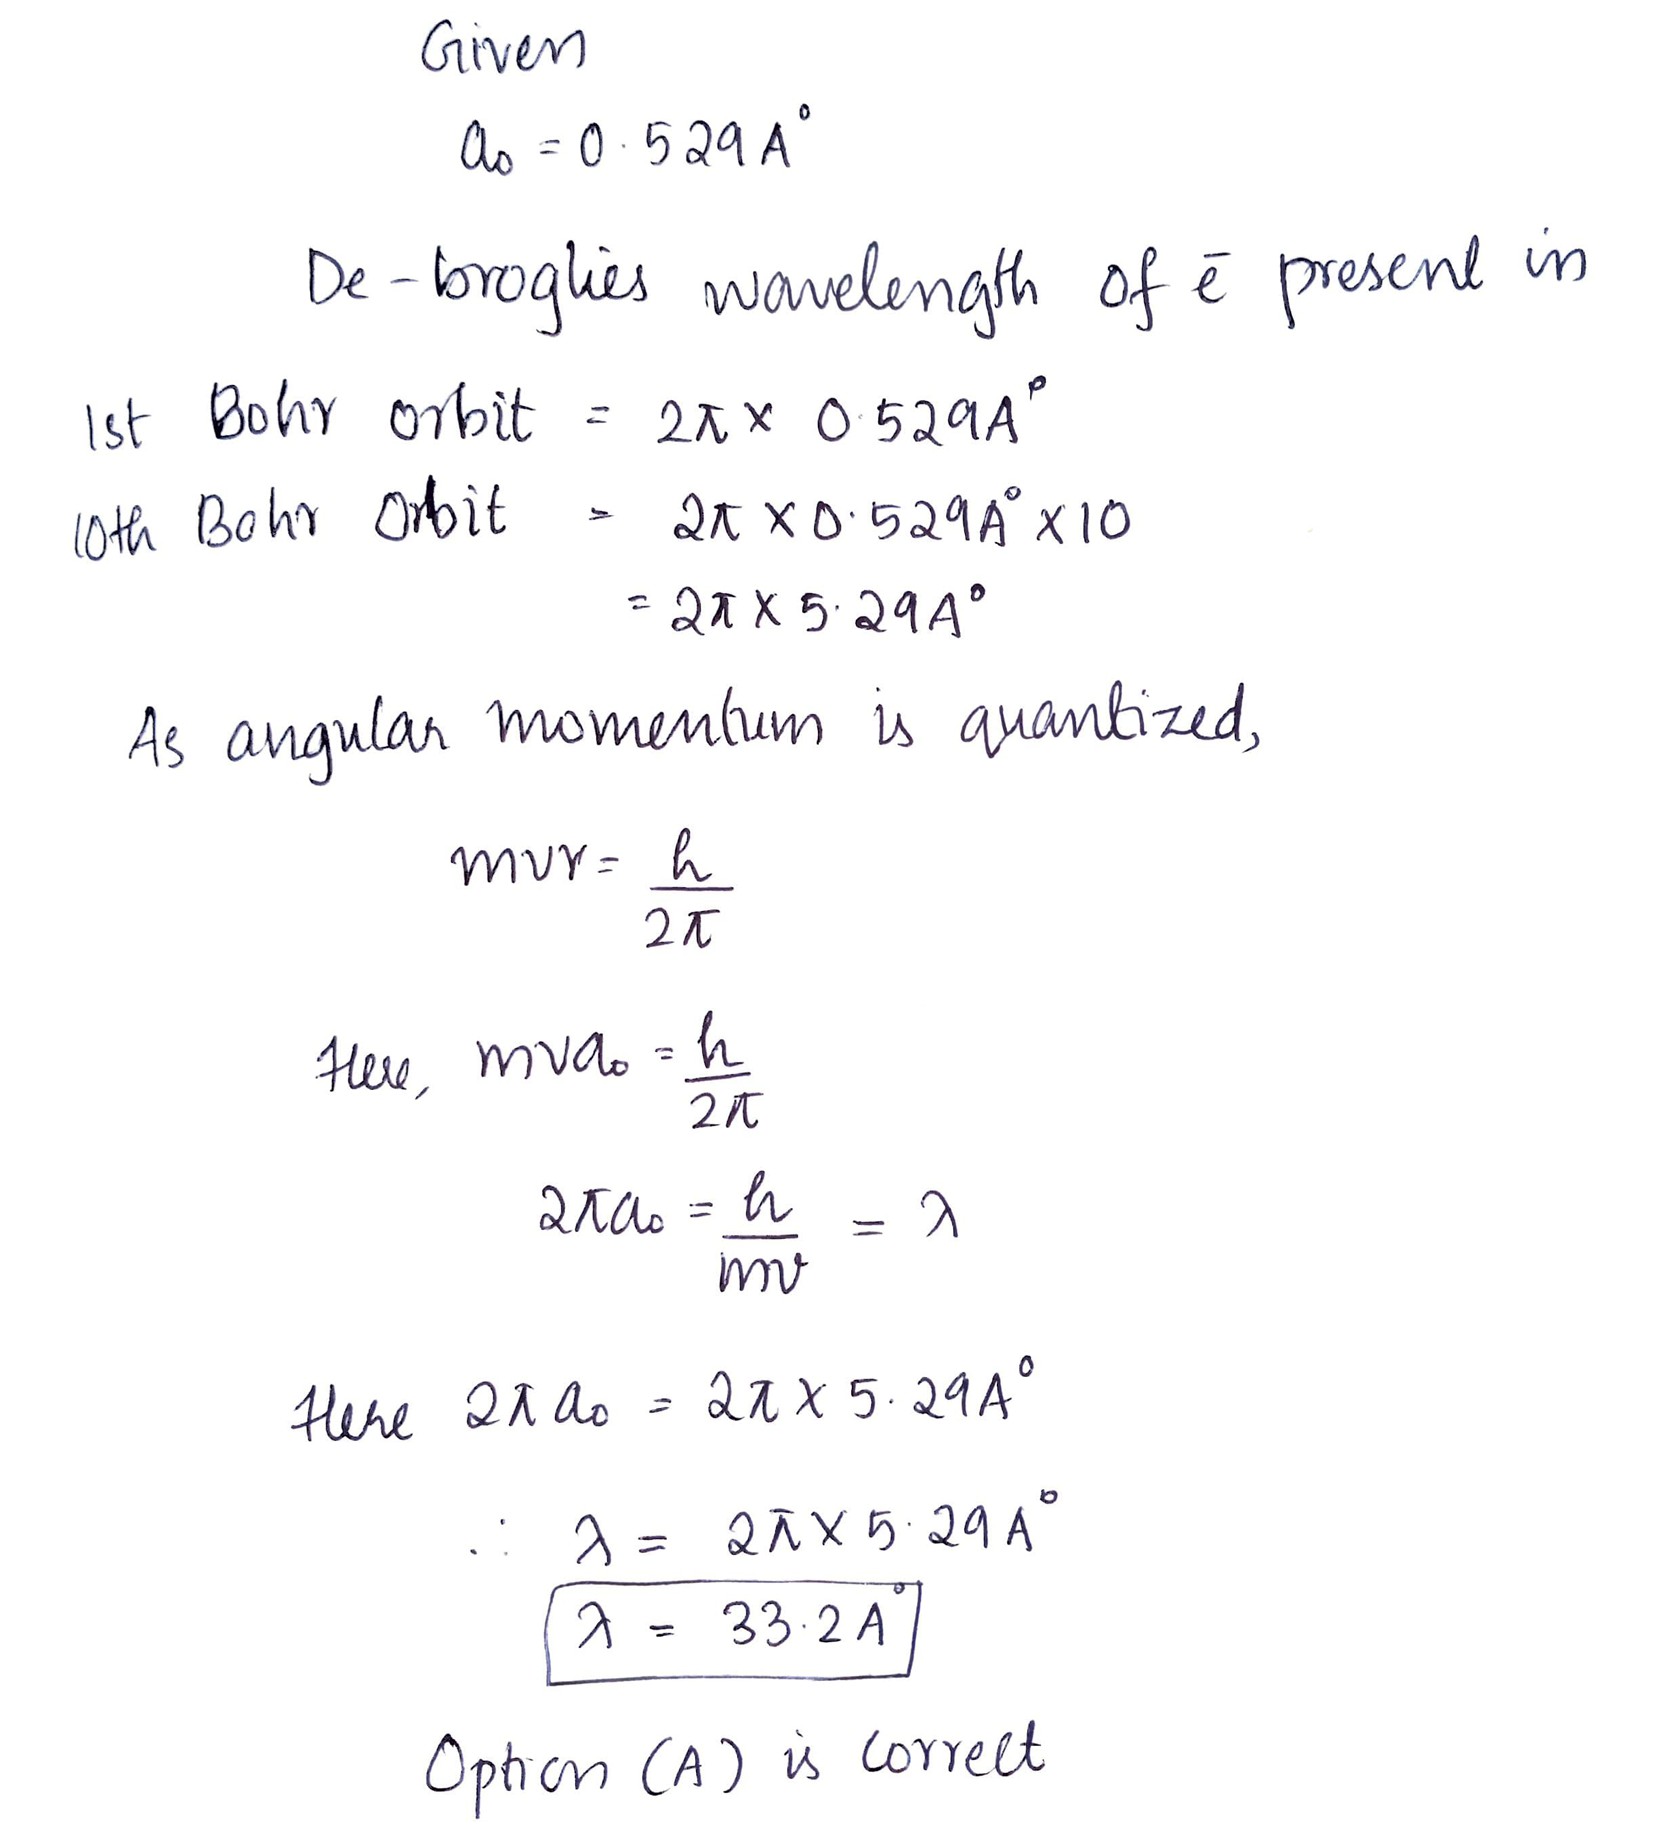 Given
a₀ = 0.529 A°
De-broglies wavelength of ē present in
1st Bohr orbit = 2π × 0.529A°
10th Bohr Orbit = 2π × 0.529A° × 10
= 2π × 5.29A°
As angular momentum is quantized,
mvr = h/2π
Here, mva₀ = h/2π
2πa₀ = h/mv = λ
Here 2πa₀ = 2π × 5.29A°
∴ λ = 2π × 5.29A°
λ = 33.2A°
Option (A) is correct